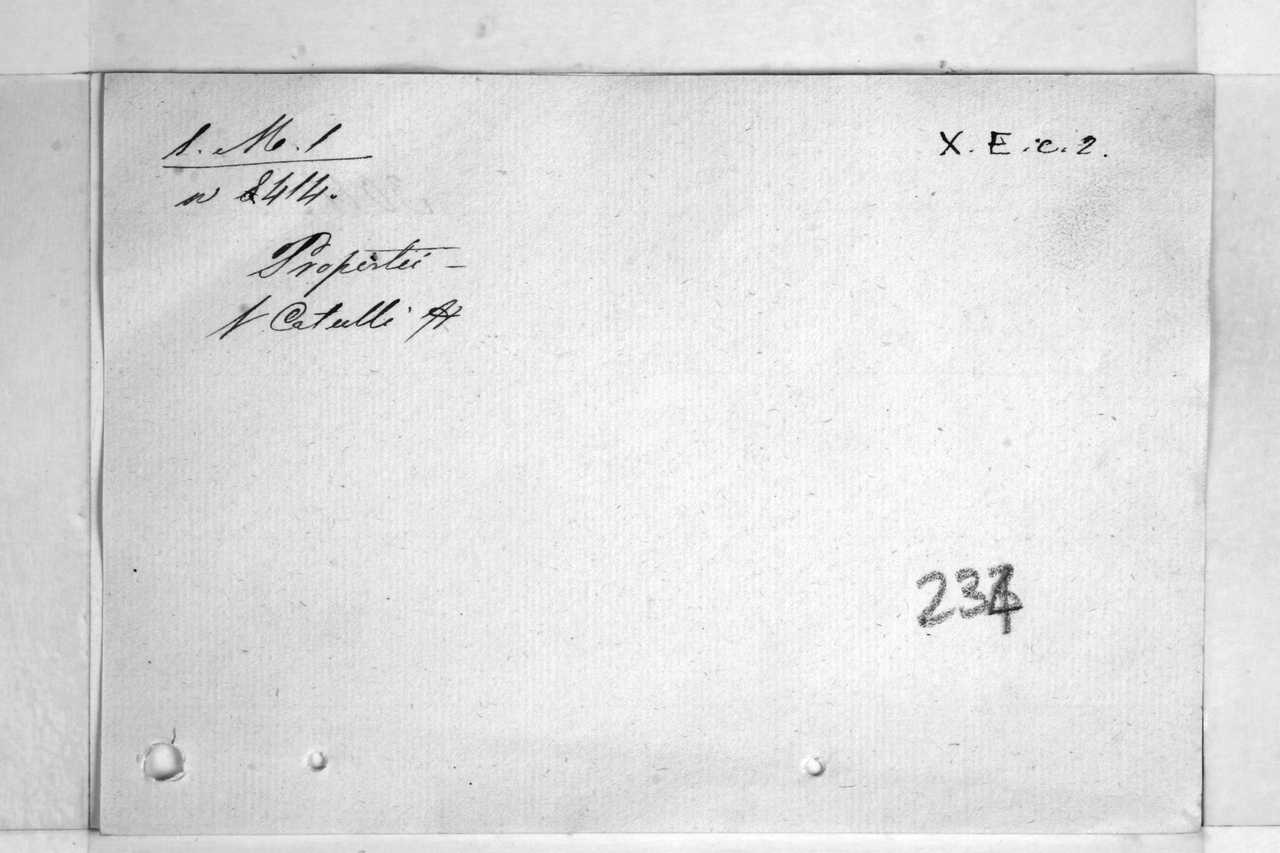 1. M. 1
X. E. c. 2.
n 8414.
Propertii -
V Catulli A
234